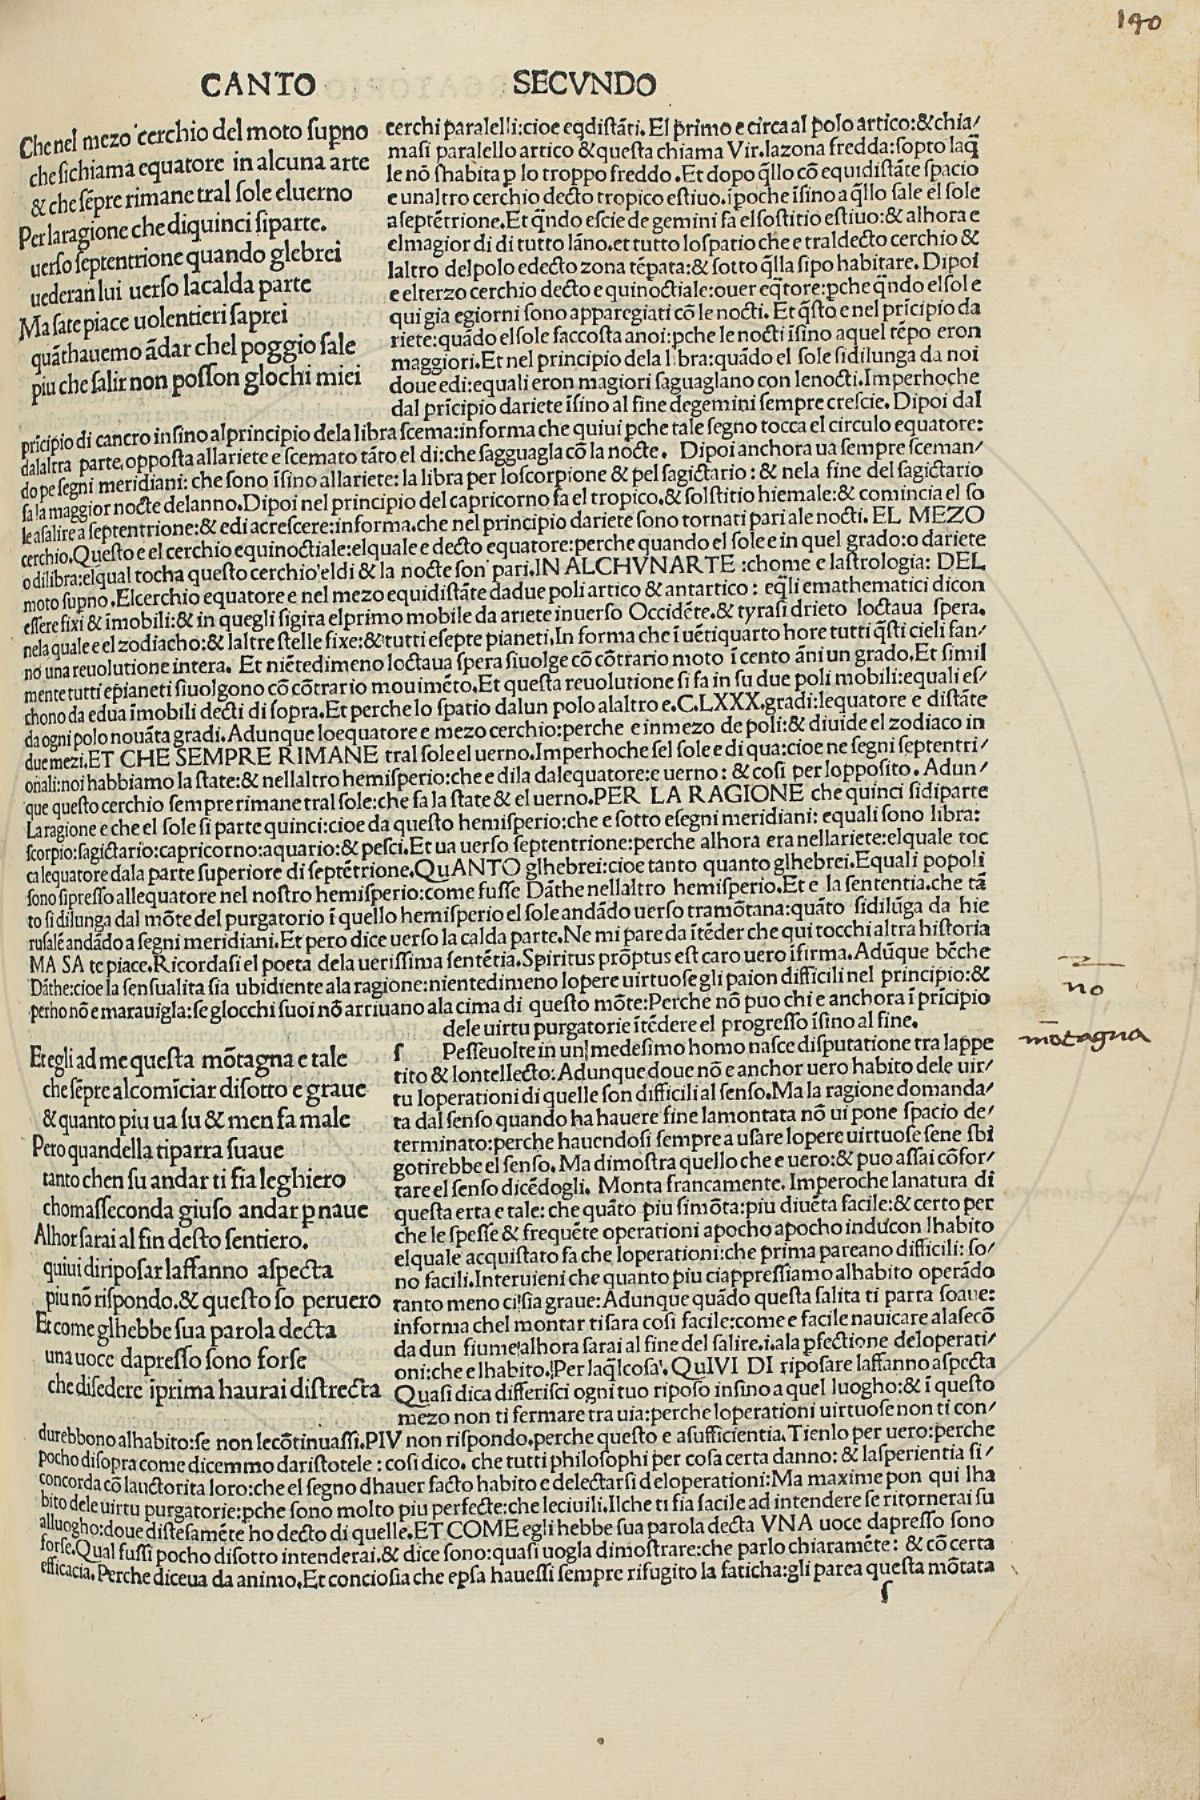 190
CANTO SECVNDO
Che nel mezo cerchio del moto supno
che sichiama equatore in alcuna arte
& che sēpre rimane tral sole eluerno
Per laragione che diquinci siparte.
uerso septentrione quando glebrei
uederan lui uerso lacalda parte
Ma sate piace uolentieri saprei
quāthauemo ādar chel poggio sale
piu che salir non posson glochi miei
cerchi paralelli: cioe eqdistāti. El primo e circa al polo artico: & chia/
masi paralello artico & questa chiama Vir. lazona fredda: sopto laq̄
le nō shabita p lo troppo freddo. Et dopo q̄llo cō equidistāte spacio
e unaltro cerchio decto tropico estiuo. īpoche īsino a q̄llo sale el sole
a septētrione. Et q̄ndo escie de gemini fa elsostitio estiuo: & alhora e
elmagior di di tutto lāno. et tutto lospatio che e traldecto cerchio &
laltro delpolo edecto zona tēpata: & sotto q̄lla sipo habitare. Dipoi
e elterzo cerchio decto equinoctiale: ouer eq̄tore: pche q̄ndo elsole
qui gia egiorni sono apparegiati cō le nocti. Et q̄sto e nel prīcipio da
riete: quādo elsole saccosta anoi: pche le nocti īsino aquel tēpo eron
maggiori. Et nel principio dela libra: quādo el sole sidilunga da noi
doue edi: equali eron magiori saguaglano con lenocti. Imperhoche
dal prīcipio dariete īsino al fine degemini sempre crescie. Dipoi dal
prīcipio di cancro insino alprincipio dela libra scema: informa che quiui pche tale segno tocca el circulo equatore:
dalaltra parte. opposta allariete e scemato tāto el di: che sagguagla cō la nocte. Dipoi anchora ua sempre sceman/
do pe segni meridiani: che sono īsino allariete: la libra per loscorpione & pel sagictario: & nela fine del sagictario
fa la maggior nocte delanno. Dipoi nel principio del capricorno fa el tropico. & solstitio hiemale: & comincia el so
le asalire a septentrione: & edi acrescere: informa. che nel principio dariete sono tornati pari ale nocti. EL MEZO
cerchio. Questo e el cerchio equinoctiale: elquale e decto equatore: perche quando el sole e in quel grado: o dariete
o dilibra: elqual tocha questo cerchio eldi & la nocte son pari. IN ALCHVNARTE: chome e lastrologia: DEL
moto supno. Elcerchio equatore e nel mezo equidistāte dadue poli artico & antartico: eq̄li emathematici dicon
essere fixi & īmobili: & in quegli sigira elprimo mobile da ariete inuerso Occidēte. & tyrasi drieto loctaua spera.
nela quale e el zodiacho: & laltre stelle fixe: & tutti esepte pianeti. In forma che ī uētiquarto hore tutti q̄sti cieli fan/
no una reuolutione intera. Et niētedimeno loctaua spera siuolge cō cōtrario moto ī cento āni un grado. Et simil
mente tutti epianeti siuolgono cō cōtrario mouimēto. Et questa reuolutione si fa in su due poli mobili: equali es/
chono da edua īmobili decti di sopra. Et perche lo spatio dalun polo alaltro e. C.LXXX. gradi: lequatore e distāte
da ogni polo nouāta gradi. Adunque loequatore e mezo cerchio: perche e inmezo de poli: & diuide el zodiaco in
due mezi. ET CHE SEMPRE RIMANE tral sole el uerno. Imperhoche sel sole e di qua: cioe ne segni septentri/
onali: noi habbiamo la state: & nellaltro hemisperio: che e dila dalequatore: e uerno: & cosi per lopposito. Adun/
que questo cerchio sempre rimane tral sole: che fa la state & el uerno. PER LA RAGIONE che quinci sidiparte
Laragione e che el sole si parte quinci: cioe da questo hemisperio: che e sotto esegni meridiani: equali sono libra:
scorpio: sagictario: capricorno: aquario: & pesci. Et ua uerso septentrione: perche alhora era nellariete: elquale toc
ca lequatore dala parte superiore di septētrione. QuANTO glhebrei: cioe tanto quanto glhebrei. Equali popoli
sono sipresso allequatore nel nostro hemisperio: come fusse Dāthe nellaltro hemisperio. Et e la sententia. che tā
to si dilunga dal mōte del purgatorio ī quello hemisperio el sole andādo uerso tramōtana: quāto sidilūga da hie
rusalē andādo a segni meridiani. Et pero dice uerso la calda parte. Ne mi pare da ītēder che qui tocchi altra historia
MA SA te piace. Ricordasi el poeta dela uerissima sentētia. Spiritus prōptus est caro uero īfirma. Adūque bēche
Dāthe: cioe la sensualita sia ubidiente ala ragione: nientedimeno lopere uirtuose gli paion difficili nel principio: &
perho nō e marauigla: se glocchi suoi nō arriuano ala cima di questo mōte: Perche nō puo chi e anchora ī prīcipio
dele uirtu purgatorie ītēdere el progresso īsino al fine.
no
mōtagna
Et egli ad me questa mōtagna e tale
che sēpre alcomīciar disotto e graue
& quanto piu ua su & men fa male
Pero quandella tiparra suaue
tanto chen su andar ti fia leghiero
chomasseconda giuso andar p naue
Alhor sarai al fin desto sentiero.
quiui diriposar laffanno aspecta
piu nō rispondo. & questo so peruero
Et come glhebbe sua parola decta
una uoce dapresso sono forse
che disedere īprima haurai distrecta
s Pesseuolte in un medesimo homo nasce disputatione tra lappe
tito & lontellecto: Adunque doue nō e anchor uero habito dele uir/
tu loperationi di quelle son difficili al senso. Ma la ragione domanda/
ta dal senso quando ha hauere fine lamontata nō ui pone spacio de/
terminato: perche hauendosi sempre a usare lopere uirtuose sene sbi
gotirebbe el senso. Ma dimostra quello che e uero: & puo assai cōfor/
tare el senso dicēdogli. Monta francamente. Imperoche lanatura di
questa erta e tale: che quāto piu simōta: piu diuēta facile: & certo per
che le spesse & frequēte operationi apocho apocho inducon lhabito
elquale acquistato fa che loperationi: che prima pareano difficili: so/
no facili. Interuieni che quanto piu ciappressiamo alhabito operādo
tanto meno ci sia graue: Adunque quādo questa salita ti parra soaue:
informa chel montar tisara cosi facile: come e facile nauicare alasecō
da dun fiume alhora sarai al fine del salire. i. ala pfectione deloperati/
oni: che e lhabito. Per laq̄lcosa. QuIVI DI riposare laffanno aspecta
Quasi dica differisci ogni tuo riposo insino a quel luogho: & ī questo
mezo non ti fermare tra uia: perche loperationi uirtuose non ti con/
durebbono alhabito: se non lecōtinuassi. PIV non rispondo. perche questo e asufficientia. Tienlo per uero: perche
pocho disopra come dicemmo daristotele: cosi dico. che tutti philosophi per cosa certa danno: & lasperientia si/
concorda cō lauctorita loro: che el segno dhauer facto habito e delectarsi deloperationi: Ma maxime pon qui lha
bito dele uirtu purgatorie: pche sono molto piu perfecte: che leciuili. Ilche ti fia facile ad intendere se ritornerai su
alluogho: doue distesamēte ho decto di quelle. ET COME egli hebbe sua parola decta VNA uoce dapresso sono
forse. Qual fussi pocho disotto intenderai. & dice sono: quasi uogla dimostrare: che parlo chiaramēte: & cō certa
efficacia. Perche diceua da animo. Et conciosia che epsa hauessi sempre rifugito la faticha: gli parea questa mōtata
s